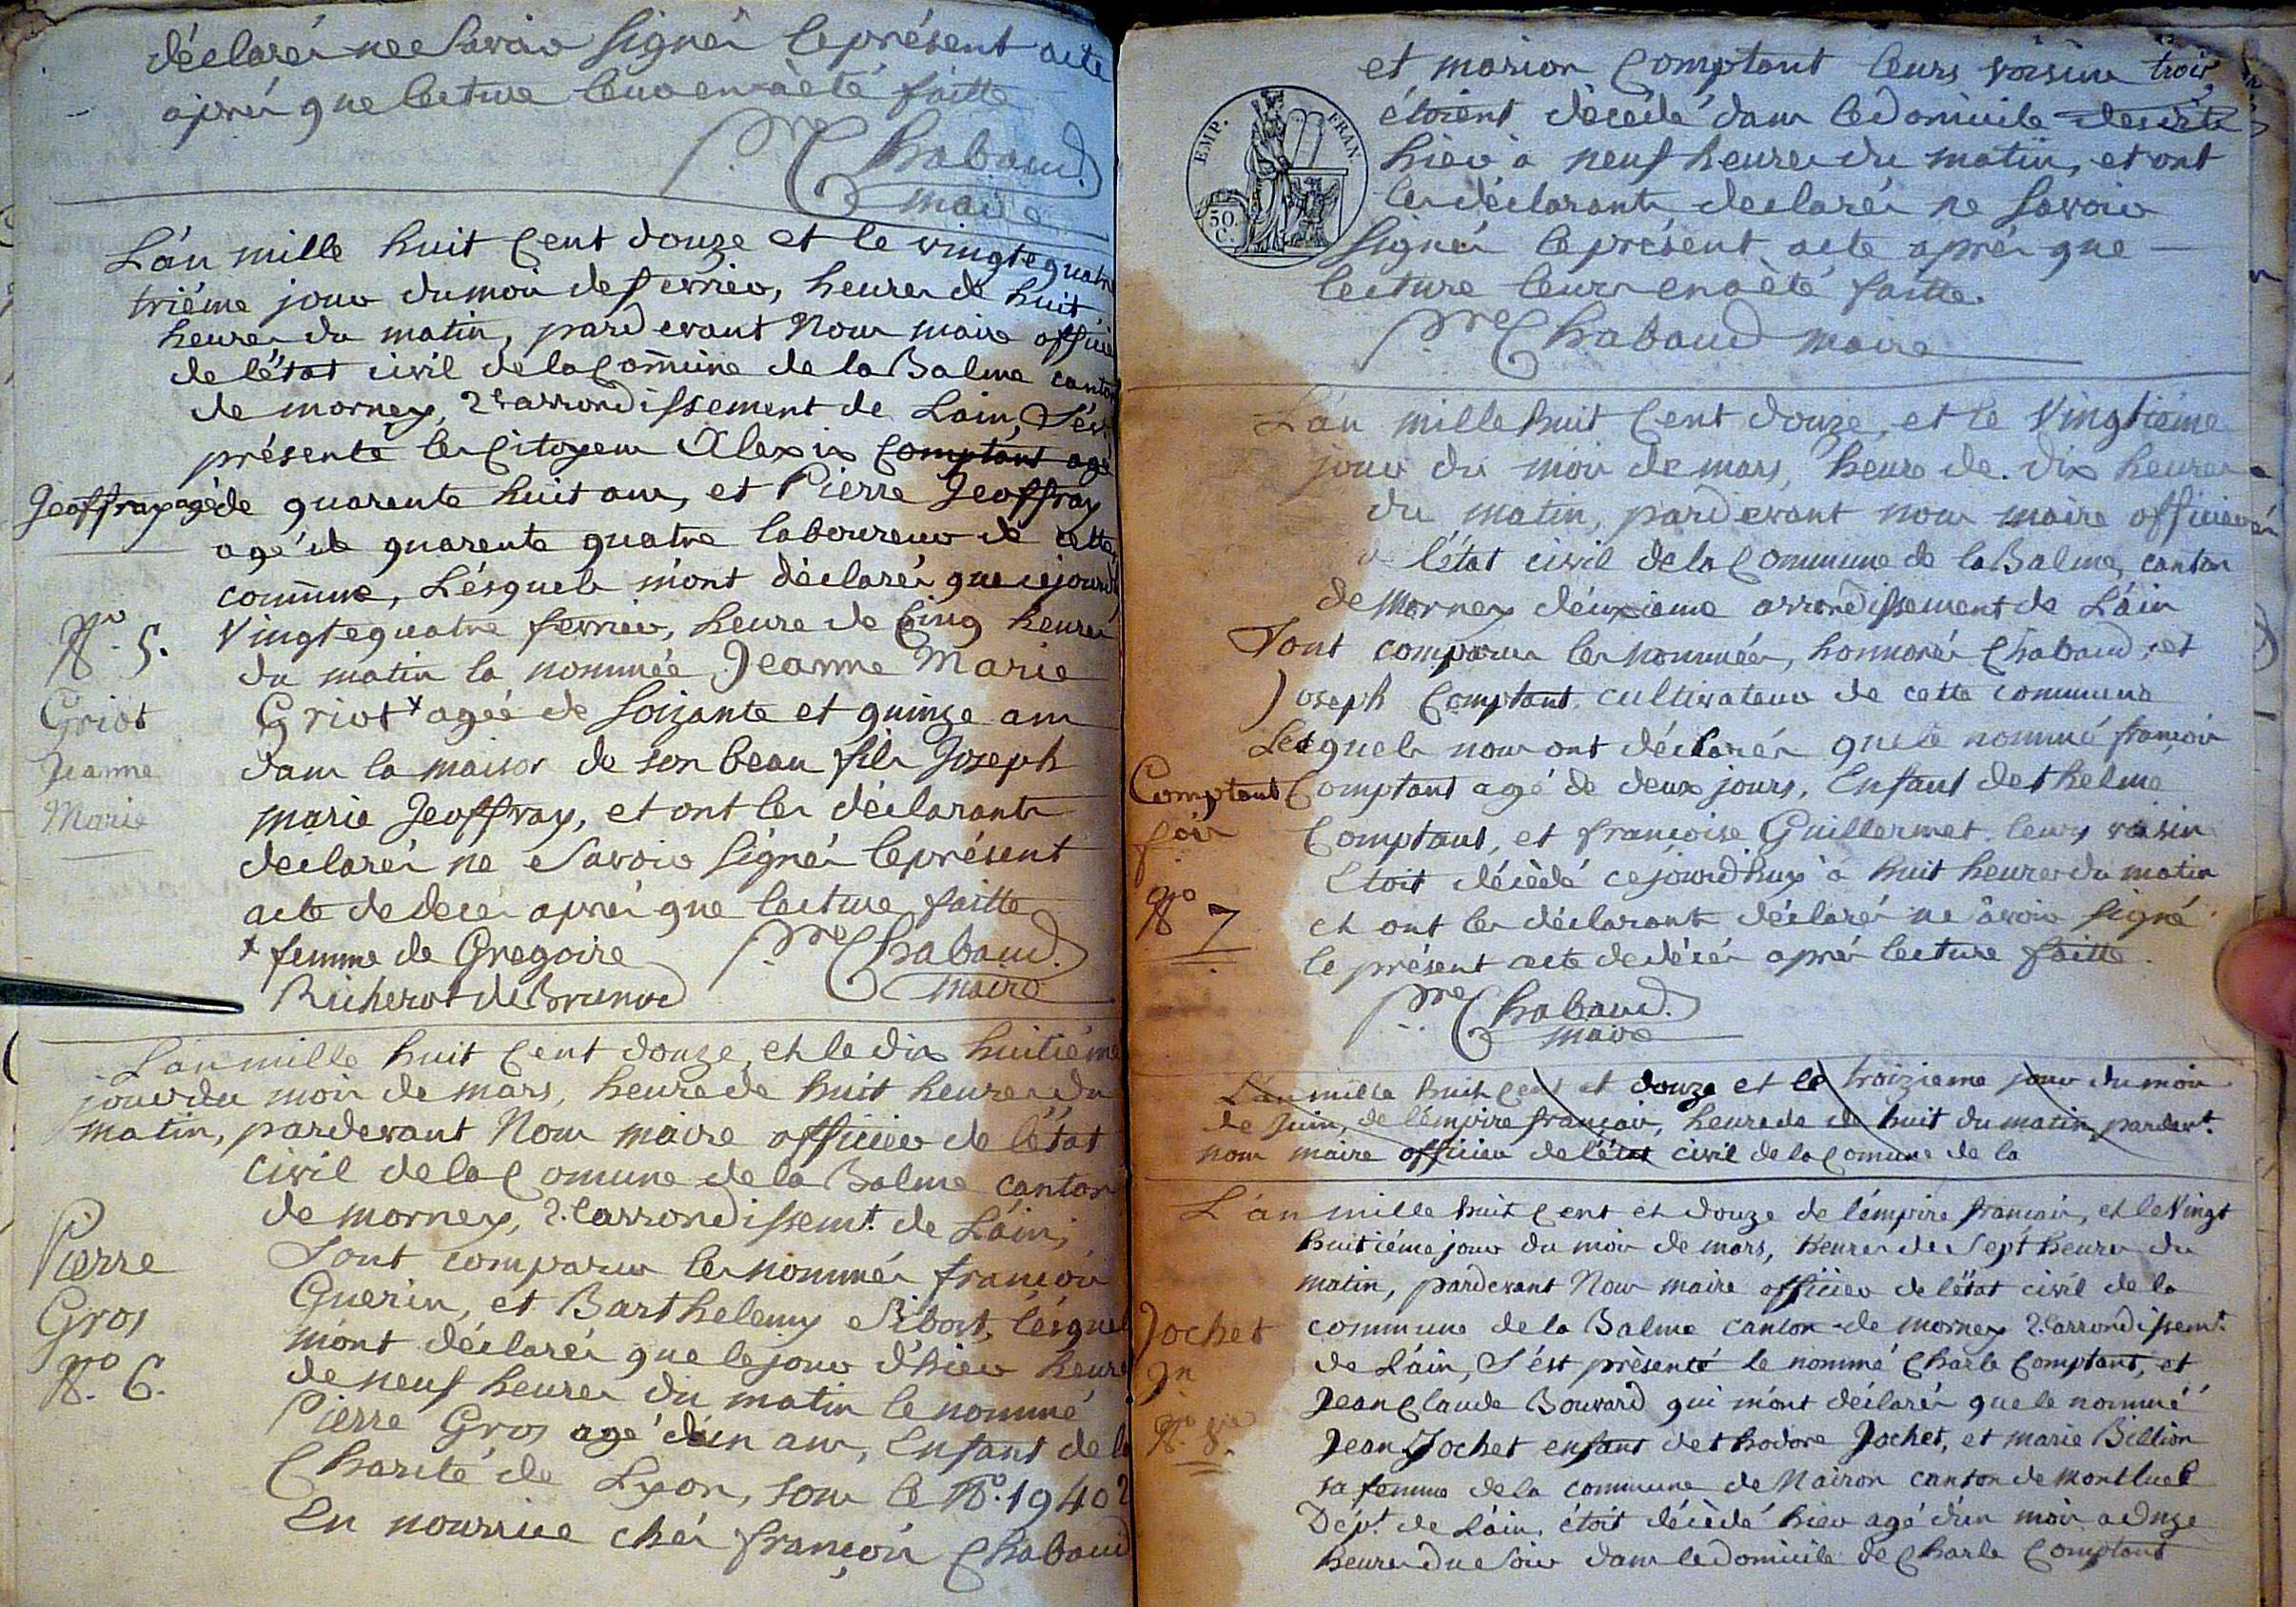 déclarés ne Savoir Signér le présent acte
aprés que lecture leur en à èté faitte
Pre Chabaud
maire
L'án mille huit Cent douze et le vingtequatr
trième jour du mois de fevriér, heures de huit
heures du matin, pardevant Nous maire officier
de l'état civil de la Com̃une de la Balme canton
de mornex, 2e arrondissement de Láin, S'ést
présenté les Citoyens Aléxis Comptant agé
Jeoffray agé de quarente huit ans, et Pierre Jeoffray
agé de quarente quatre laboureur de cette
com̃une, Lésquels m'ont déclarés que ce jourd
N.o 5. Vingtequatre fevrier, heure de Cinq heures
du matin la nommée Jeanne Marie
Griot Griot x agée de Soizante et quinze ans
Jeanne dans la maison de son beau fils Joseph
Marie marie Jeoffray, et ont les déclarants
declarés ne Savoir Signér le présent
acte de decés aprés que lecture faitte
x femme de Gregoire Pre Chabaud.
Richerot de Brunod maire
L'an mille huit Cent douze, et le dix huitiéme
jour du mois de mars, heure de huit heures du
matin, pardevant Nous maire officier de l'état
civil de la Comune de la Balme canton
de mornex, 2.e arrondissemt. de Láin;
Pierre Sont comparus les nommés françois
Gros Guerin, et Barthelemy Sibort, lésquel
N.o 6. m'ont déclarés que le jour d'hiér heure
de neuf heures du matin le nommé
Pierre Gros agé d'un ans, Enfant de la
Charité de Lyon, sous le No. 19402
En nourrice chés françois Chabaud
et marion Comptant leurs voisins trois
EMP. FRAN.
50. C.
étoient décédé dans le domicile desdits
hiér à neuf heures du matin, et ont
les déclarants declarés ne Savoir
Signér le présent acte aprés que
lecture leurs en à èté faitte.
Pre Chabaud maire
L'án mille huit Cent douze, et le Vingtiéme
jour du mois de mars, heure de dix heures
du matin, pardevant nous maire officier
l'état civil de la Commune de la Balme, canton
de Mornex déuxieme arrondissement de Láin
Sont comparus les nommées, honnorés Chabaud, et
Joseph Comptant cultivateur de cette commune
Lesquels nous ont déclarés que le nommé françois
Comptant Comptant agé de deux jours, Enfant de thelme
fois Comptant, et françoise Guillermet leurs voisin
Etoit décédé ce jourd'huy à huit heures du matin
No 7 et ont les déclarant déclarés ne savoir signé
le présent acte de décés aprés lecture faitte.
Pre Chabaud.
maire
L'án mille huit Cent et douze et le troizieme jour du mois
de Juin, de l'émpire françois, heure de huit du matin, pardevt.
nous maire officier de l'état civil de la Comune de la
L'án mille huit Cent et douze de l'émpire francois, et le Vingt
huitiéme jour du mois de mars, heures de Sept heures du
matin, pardevant Nous maire officier de l'état civil de la
Jochet commune de la Balme canton de mornex 2.e arrondissemt.
Jn de Láin, S'ést présenté le nommé Charle Comptant, et
Jean Claude Bouvard qui m'ont déclarés que le nommé
N.o 8. Jean Jochet enfant de thodore Jochet, et marie Billion
sa femme de la commune de Nairon canton de montluel
Dépt. de Láin, étoit décédé hier agé d'un mois a onze
heures du Soir dans le domicile de Charle Comptant